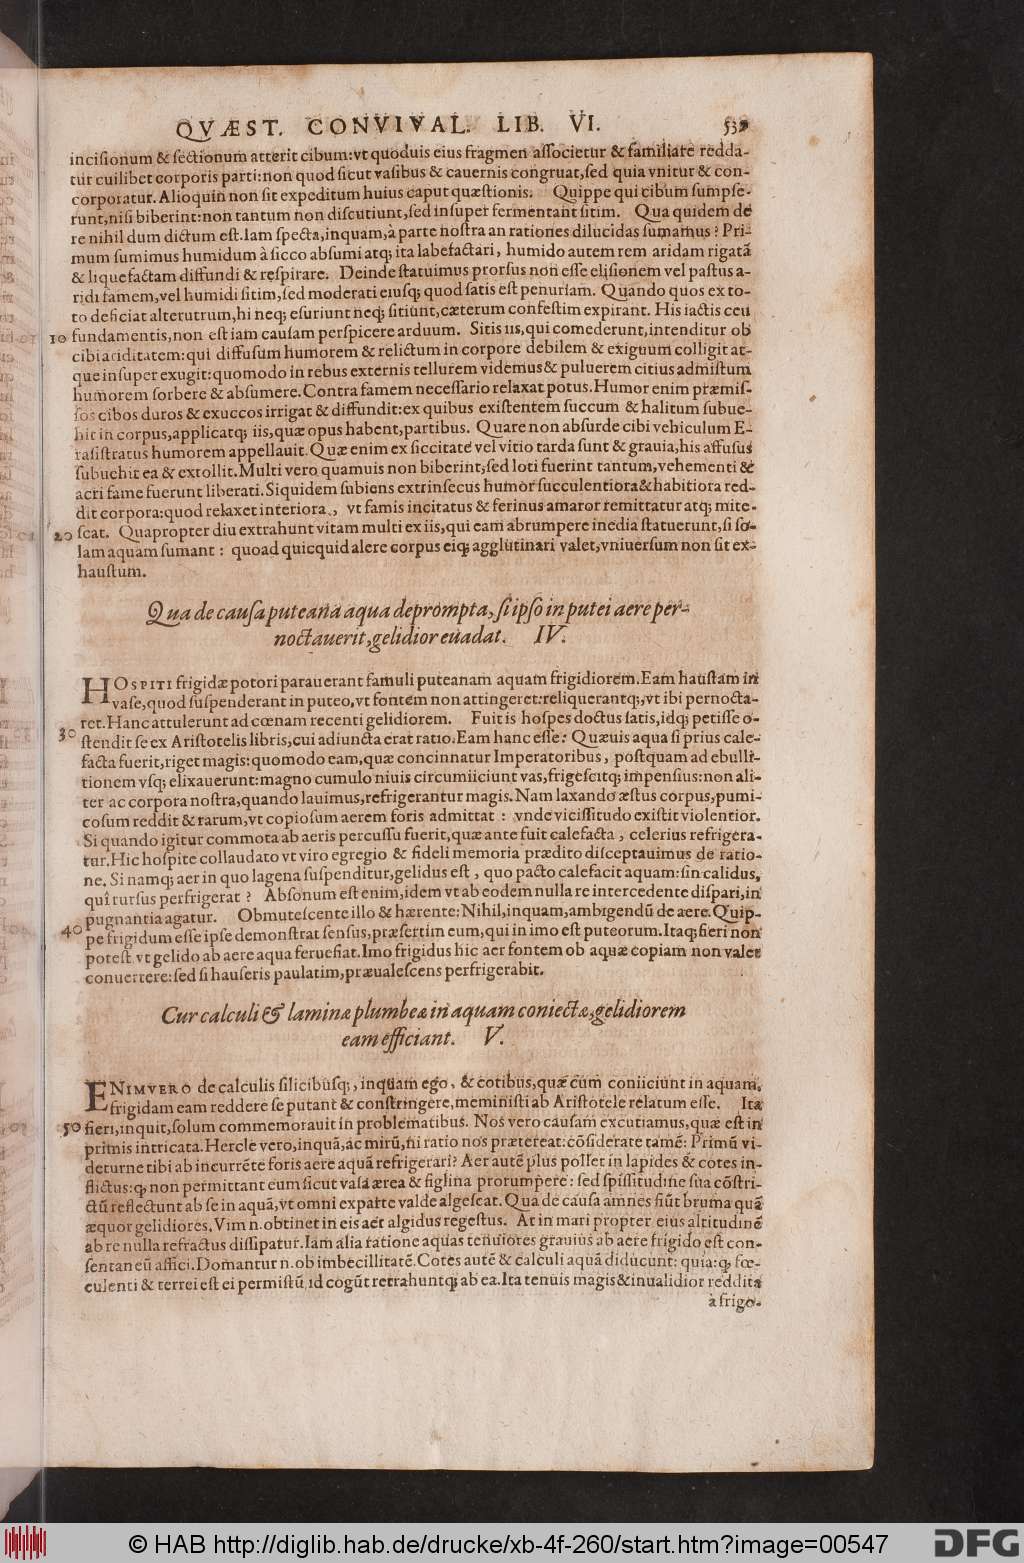 QVÆST. CONVIVAL. LIB. VI. 539
incisionum & sectionum atterit cibum: vt quoduis eius fragmen associetur & familiare redda-
tur cuilibet corporis parti: non quod sicut vasibus & cauernis congruat, sed quia vnitur & con-
corporatur. Alioquin non sit expeditum huius caput quæstionis. Quippe qui cibum sumpse-
runt, nisi biberint: non tantum non discutiunt, sed insuper fermentant sitim. Qua quidem de
re nihil dum dictum est. Iam specta, inquam, à parte nostra an rationes dilucidas sumamus? Pri-
mum sumimus humidum à sicco absumi atq; ita labefactari, humido autem rem aridam rigatã
& liquefactam diffundi & respirare. Deinde statuimus prorsus non esse elisionem vel pastus a-
ridi famem, vel humidi sitim, sed moderati eiusq; quod satis est penuriam. Quando quos ex to-
to deficiat alterutrum, hi neq; esuriunt neq; sitiunt, cæterum confestim expirant. His iactis ceu
10 fundamentis, non est iam causam perspicere arduum. Sitis iis, qui comederunt, intenditur ob
cibi ariditatem: qui diffusum humorem & relictum in corpore debilem & exiguum colligit at-
que insuper exugit: quomodo in rebus externis tellurem videmus & puluerem citius admistum
humorem sorbere & absumere. Contra famem necessario relaxat potus. Humor enim præmis-
sos cibos duros & exuccos irrigat & diffundit: ex quibus existentem succum & halitum subue-
hit in corpus, applicatq; iis, quæ opus habent, partibus. Quare non absurde cibi vehiculum E-
rasistratus humorem appellauit. Quæ enim ex siccitate vel vitio tarda sunt & grauia, his affusus
subuehit ea & extollit. Multi vero quamuis non biberint, sed loti fuerint tantum, vehementi &
acri fame fuerunt liberati. Siquidem subiens extrinsecus humor succulentiora & habitiora red-
dit corpora: quod relaxet interiora, vt famis incitatus & ferinus amaror remittatur atq; mite-
20 scat. Quapropter diu extrahunt vitam multi ex iis, qui eam abrumpere inedia statuerunt, si so-
lam aquam sumant: quoad quicquid alere corpus eiq; agglutinari valet, vniuersum non sit ex-
haustum.
Qua de causa puteana aqua deprompta, si ipso in putei aere per-
noctauerit, gelidior euadat. IV.
HOSPITI frigidæ potori parauerant famuli puteanam aquam frigidiorem. Eam haustam in
vase, quod suspenderant in puteo, vt fontem non attingeret: reliquerantq;, vt ibi pernocta-
ret. Hanc attulerunt ad cœnam recenti gelidiorem. Fuit is hospes doctus satis, idq; petisse o-
30 stendit se ex Aristotelis libris, cui adiuncta erat ratio. Eam hanc esse: Quæuis aqua si prius cale-
facta fuerit, riget magis: quomodo eam, quæ concinnatur Imperatoribus, postquam ad ebulli-
tionem vsq; elixauerunt: magno cumulo niuis circumiiciunt vas, frigescitq; impensius: non ali-
ter ac corpora nostra, quando lauimus, refrigerantur magis. Nam laxando æstus corpus, pumi-
cosum reddit & rarum, vt copiosum aerem foris admittat: vnde vicissitudo existit violentior.
Si quando igitur commota ab aeris percussu fuerit, quæ ante fuit calefacta, celerius refrigera-
tur. Hic hospite collaudato vt viro egregio & fideli memoria prædito disceptauimus de ratio-
ne. Si namq; aer in quo lagena suspenditur, gelidus est, quo pacto calefacit aquam: sin calidus,
quî rursus perfrigerat? Absonum est enim, idem vt ab eodem nulla re intercedente dispari, in
pugnantia agatur. Obmutescente illo & hærente: Nihil, inquam, ambigendũ de aere. Quip-
40 pe frigidum esse ipse demonstrat sensus, præsertim eum, qui in imo est puteorum. Itaq; fieri non
potest vt gelido ab aere aqua feruefiat. Imo frigidus hic aer fontem ob aquæ copiam non valet
conuertere: sed si hauseris paulatim, præualescens perfrigerabit.
Cur calculi & laminæ plumbeæ in aquam coniectæ, gelidiorem
eam efficiant. V.
ENIMVERO de calculis silicibusq;, inquam ego, & cotibus, quæ cum coniiciunt in aquam,
frigidam eam reddere se putant & constringere, meministi ab Aristotele relatum esse. Ita
50 fieri, inquit, solum commemorauit in problematibus. Nos vero causam excutiamus, quæ est in
primis intricata. Hercle vero, inquã, ac mirũ, ni ratio nos prætereat: cõsiderate tamẽ: Primũ vi-
deturne tibi ab incurrẽte foris aere aquã refrigerari? Aer autẽ plus pollet in lapides & cotes in-
flictus: q; non permittant eum sicut vasa ærea & figlina prorumpere: sed spissitudine sua cõstri-
ctũ reflectunt ab se in aquã, vt omni ex parte valde algescat. Qua de causa amnes fiũt bruma quã
æquor gelidiores. Vim n. obtinet in eis aer algidus regestus. At in mari propter eius altitudinẽ
ab re nulla refractus dissipatur. Iam alia ratione aquas tenuiores grauius ab aere frigido est con-
sentaneũ affici. Domantur n. ob imbecillitatẽ. Cotes autẽ & calculi aquã diducunt: quia: q; fœ-
culenti & terrei est ei permistũ, id cogũt retrahuntq; ab ea. Ita tenuis magis & inualidior reddita
à frigo-
© HAB http://diglib.hab.de/drucke/xb-4f-260/start.htm?image=00547
DFG